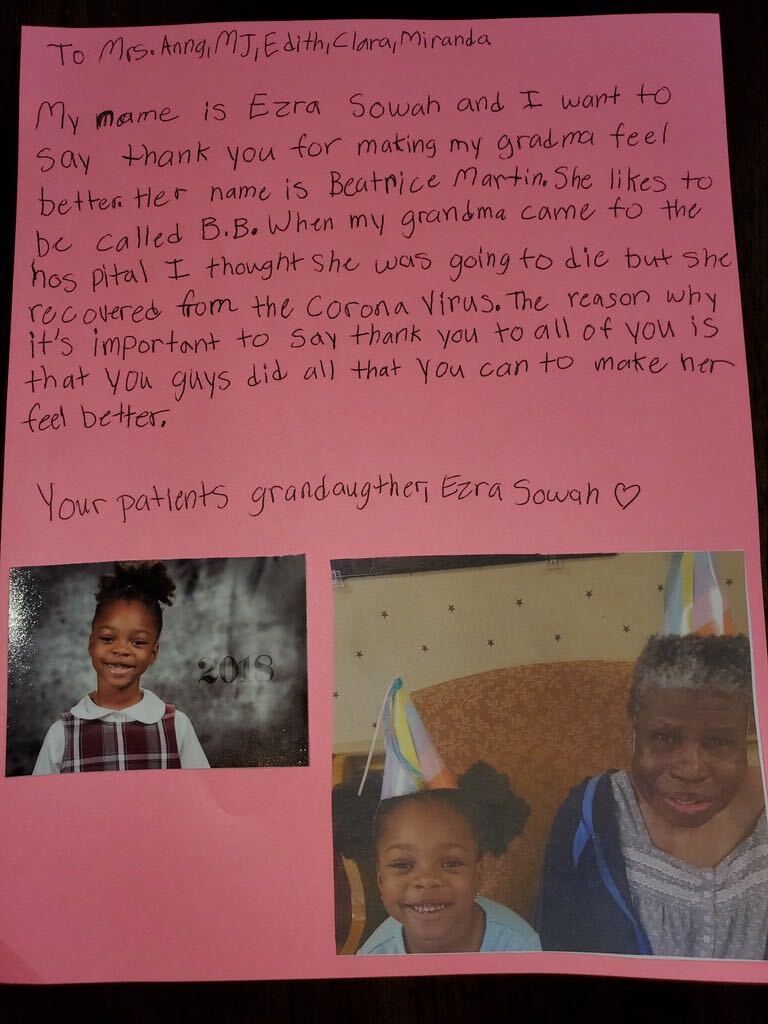 To Mrs. Anng, MJ, Edith, Clara, Miranda
My name is Ezra Sowah and I want to
say thank you for making my gradma feel
better. Her name is Beatrice Martin. She likes to
be called B.B. When my grandma came to the
hospital I thought she was going to die but she
recovered from the Corona Virus. The reason why
it's important to say thank you to all of you is
that you guys did all that you can to make her
feel better.
Your patients grandaugther, Ezra Sowah ♡
2018